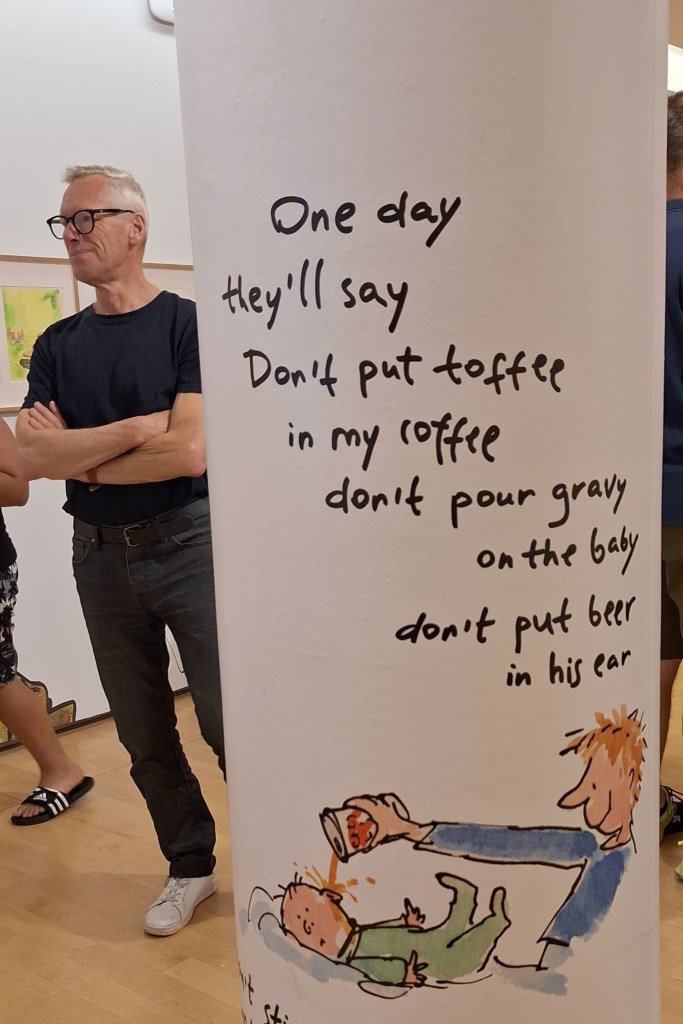 One day
they'll say
Don't put toffee
in my coffee
don't pour gravy
on the baby
don't put beer
in his ear